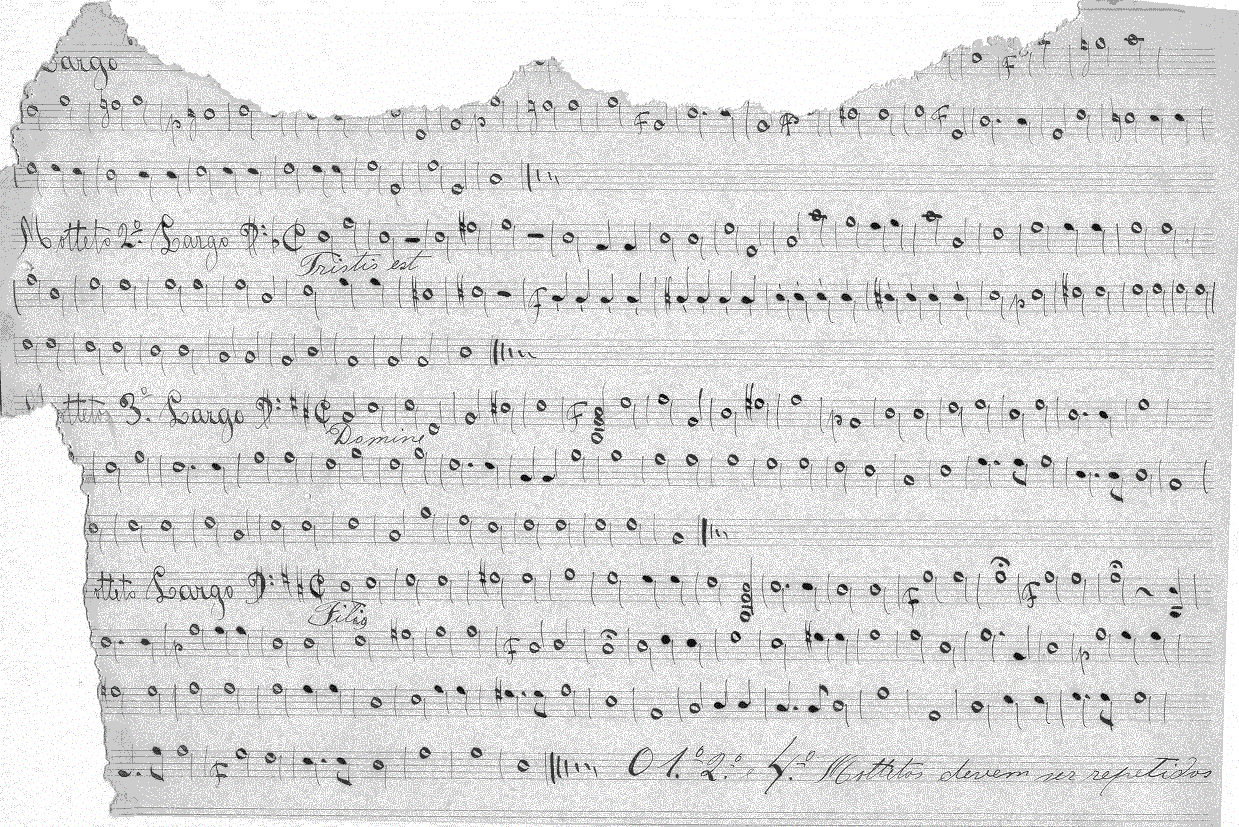 Largo
Motteto 2º. Largo
Tristis est
Largo
Domine
Largo
O 1.º 2.º e 4.º Mottetos devem ser repetidos